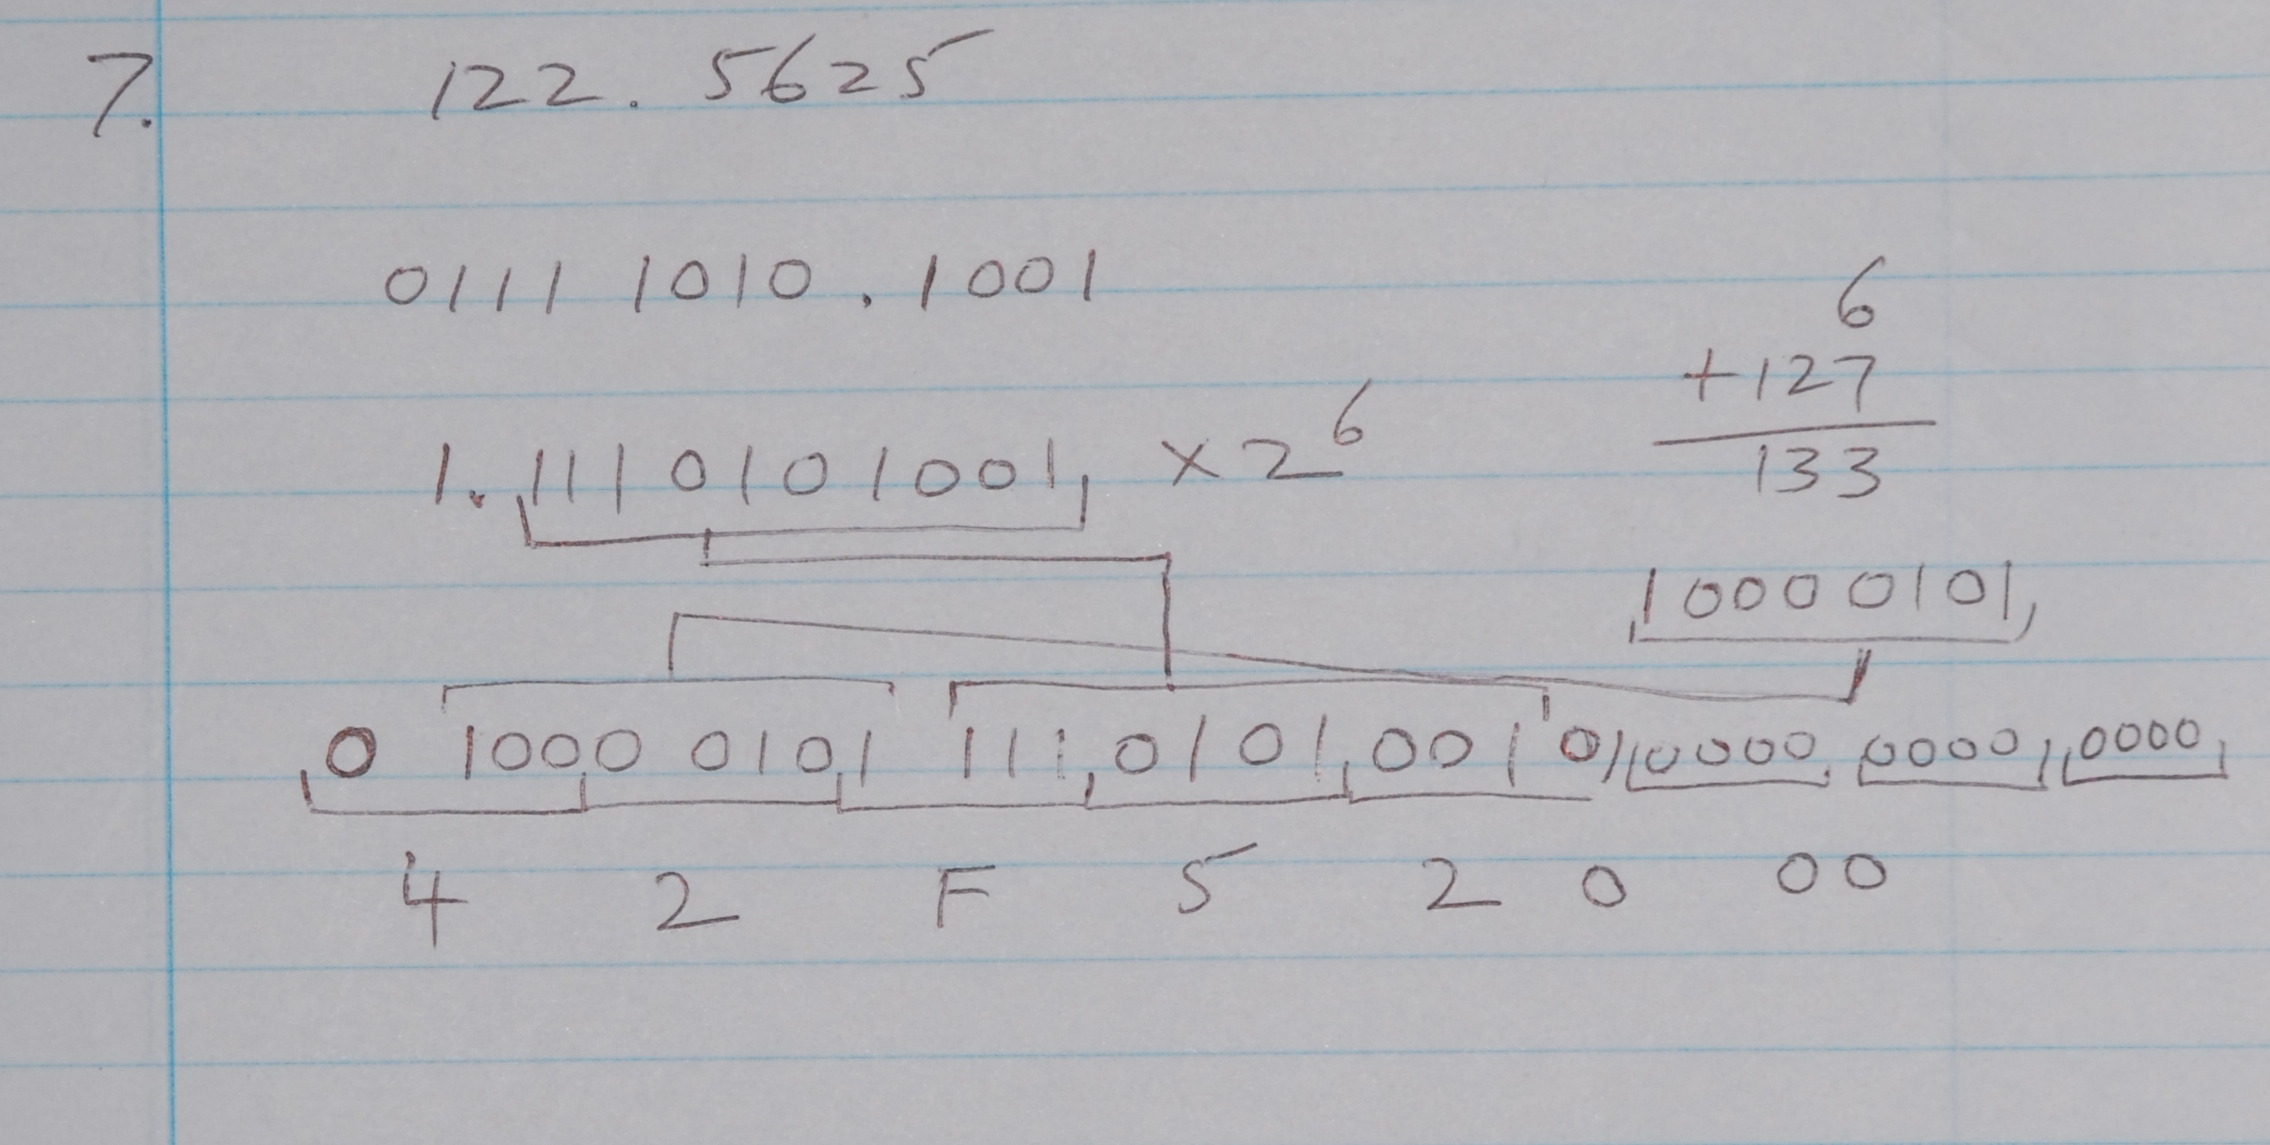 7. 122.5625
0111 1010.1001
6
+127
133
1.1110101001 × 2^6
10000101
0 1000 0101 111 0101 0010 0000 0000 0000
4 2 F 5 2 0 00